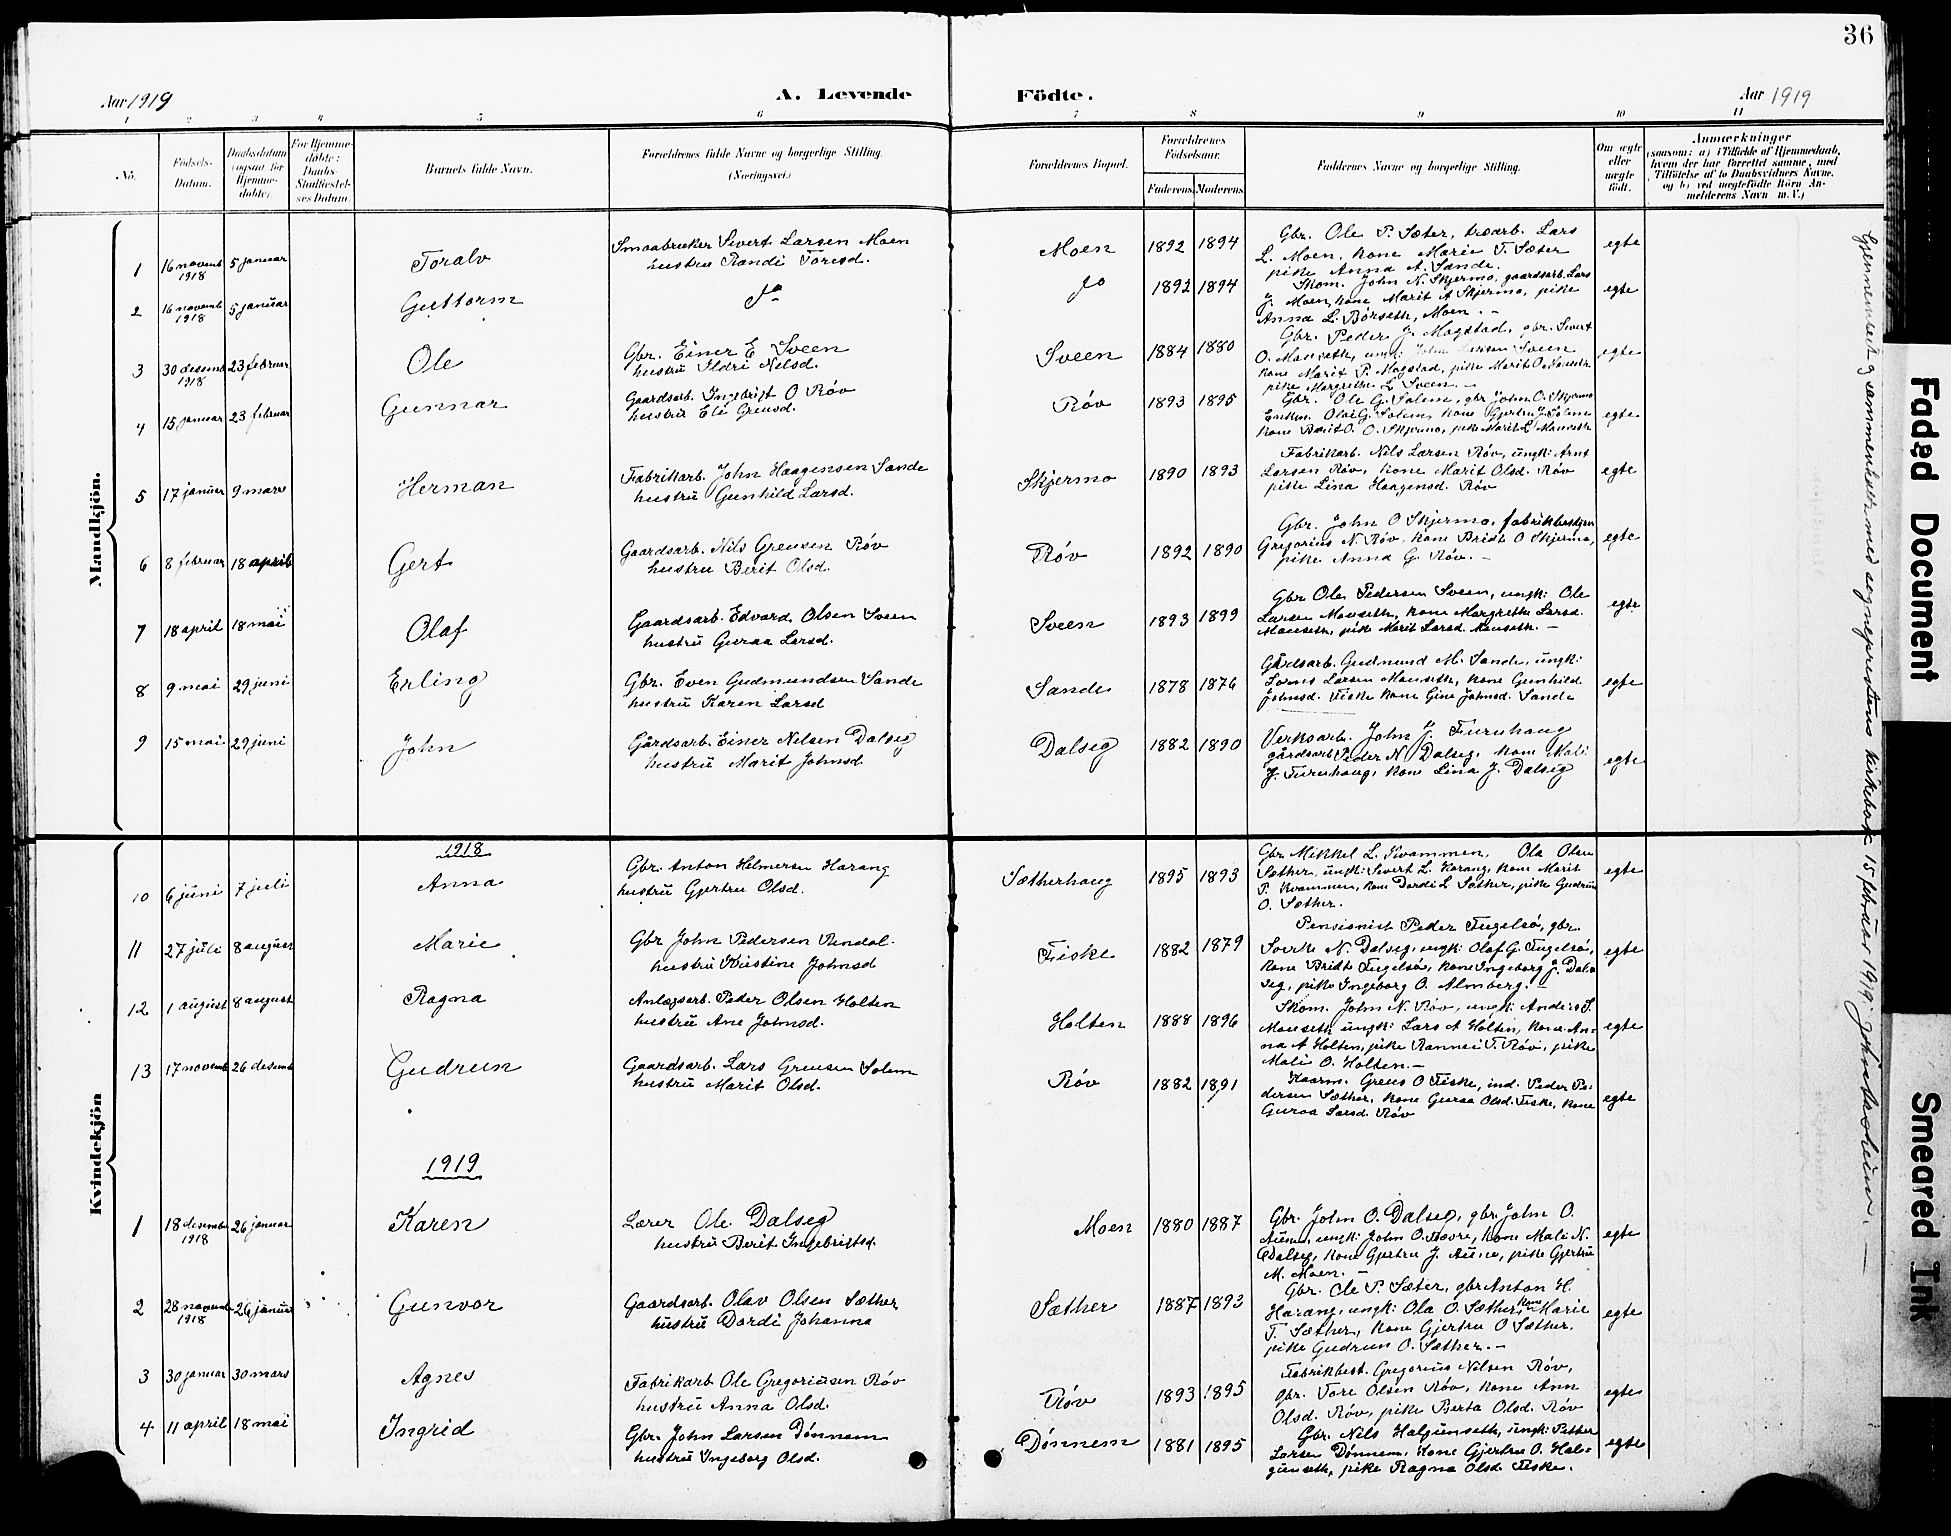 36
Aar 1919
A. Levende
Födte.
Aar 1919
1 2 3 4 5 6 7 8 9 10 11
No.
Födsels-
Datum.
Daabsdatum
(ogsaa for
Hjemme-
døbte)
For Hjemme-
døbte:
Daabs-
Stadfæstel-
ses Datum.
Barnets fulde Navn.
Forældrenes fulde Navne og borgerlige Stilling.
(Næringsvei.)
Forældrenes Bopæl.
Forældrenes
Födselsaar.
Faderens. Moderens.
Faddernes Navne og borgerlige Stilling.
Om ægte
eller
uægte
født.
Anmærkninger
(saasom: a) i Tilfælde af Hjemmedaab,
hvem der har forrettet samme, med
Tilföielse af to Daabsvidners Navne,
og b) ved uegtefödte Börn An-
melderens Navn m. V.)
Mandkjön.
1 16 novemb 1918 5 januar Toralv
Smaabruker Sivert Larsen Moen
hustru Randi Toresd.
Moen 1892 1894
Gbr. Ole P. Sæter, Lars
L. Moen, kone Marie T. Sæter
pike Anna A. Sande.
egte
2 16 novemb 1918 5 januar Guttorm
do
do 1892 1894
Skom. John N. Skjermo, gaardsarb. Lars
J. Moen, kone Marit A Skjermo, pike
Anna L. Børseth, Moen. -
egte
3 30 desemb 1918 23 februar Ole
Gbr. Einer E Sveen
hustru Ildri Nilsd.
Sveen 1884 1880
Gbr. Peder J. Magstad, gbr. Sivert
O. Mauseth, ungk: John Sveen
kone Marit P. Magstad, pike Marit O. Mauseth
pike Margrethe L Sveen. -
egte
4 15 januar 23 februar Gunnar
Gaardsarb. Ingebrigt O Røv
hustru Eli Greusd.
Røv 1893 1895
Gbr. Ole G. Solem, gbr John O. Skjermo
Enkem. Olai G. Solem, kone Gjertru J. Solem
kone Berit O. O. Skjermo, pike Marit L Mauseth
egte
5 17 januar 9 mars Herman
Fabrikarb. John Haagensen Sande
hustru Gunhild Larsd.
Skjermo 1890 1893
Fabrikarb. Nils Larsen Røv, ungk: Arnt
Larsen Røv, kone Marit Olsd. Røv
pike Lina Haagensd. Røv
egte
6 8 februar 18 april Gert
Gaardsarb. Nils Greusen Røv
hustru Berit Olsd.
Røv 1892 1890
Gbr. John O Skjermo, fabrikbestyrer
Gregorius N. Røv, kone Bridt O Skjermo,
pike Anna G. Røv. -
egte
7 18 april 18 mai Olaf
Gaardsarb. Edvard Olsen Sveen
hustru Guraa Larsd.
Sveen 1893 1899
Gbr Ole Pedersen Sveen, ungk: Ole
Larsen Mauseth, kone Margrethe Larsd.
Mauseth, pike Marit Larsd. Mauseth. -
egte
8 9 mai 29 juni Erling
Gbr. Even Gudmundsen Sande
hustru Karen Larsd
Sande 1878 1876
Gårdsarb. Gudmund M. Sande, ungk:
Larsen Mauseth, kone Gunhild
Johnsd. Fiske kone Gine Johnsd. Sande
egte
9 15 mai 29 juni John
Gårdsarb. Einer Nilsen Dalseg
hustru Marit Johnsd.
Dalseg 1882 1890
Verksarb. John J. Furuhaug
gårdsarb Peder N. Dalseg, kone Mali
J. Furuhaug, kone Lina J. Dalseg
egte
Kvindekjön
1918
10 6 juni 7 juli Anna
Gbr. Anton Helmersen Harang
hustru Gjertru Olsd.
Sætherhaug 1895 1893
Gbr Mikkel L. Kvammen, Ola Olsen
Sæther, ungk: Sivert L. Harang, kone Marit
P. Kvammen, kone Dordi L Sæther, pike Gudrun
O. Sæther.
egte
11 27 juli 8 august Marie
Gbr John Pedersen Rendal
hustru Kristine Johnsd
Fiske 1882 1879
Pensionist Peder Fugelsø, gbr.
Sverke N. Dalseg, ungk: Olaf G. Fugelsø,
kone Bridt Fugelsø, kone Ingeborg J. Dal-
seg, pike Ingeborg O. Almberg. -
egte
12 1 august 8 august Ragna
Anlægsarb. Peder Olsen Holten
hustru Ane Johnsd.
Holten 1888 1896
Skom. John N. Røv, ungk: Anders S.
Mauseth ungk: Lars A Holten, kone An-
na A Holten, pike Rannei T. Røv, pike
Mali O. Holten. -
egte
13 17 novemb 26 desemb Gudrun
Gaardsarb. Lars Greusen Solem
hustru Marit Olsd.
Røv 1882 1891
Kaarm. Greus O Fiske, ind. Peder Pe-
dersen Sæther, kone Guraa Olsd. Fiske, kone
Guraa Larsd. Røv
egte
1919
1 18 desemb 1918 26 januar Karen
Lærer Ole Dalseg
hustru Berit Ingebrigtsd.
Moen 1880 1887
Gbr. John O. Dalseg, gbr. John O.
Aune, ungk: John O. kone Mali N.
Dalseg, kone Gjertru J. Aune, pike Gjertru
M. Moen. -
egte
2 28 novemb 1918 26 januar Gunvor
Gaardsarb. Olav Olsen Sæther
hustru Dordi Johanna
Sæther 1887 1893
Gbr. Ole P. Sæter, gbr Anton H.
Harang, ungk: Ola O. Sæther, kone Marie
T. Sæther, kone Gjertru O Sæther,
pike Gudrun O. Sæther. -
egte
3 30 januar 30 mars Agnes
Fabrikarb Ole Gregoriusen Røv
hustru Anna Olsd.
Røv 1893 1895
Fabrikbest. Gregorius Nilsen Røv,
gbr. Tore Olsen Røv, kone Ann
Olsd. Røv, pike Berta Olsd. Røv
egte
4 11 april 18 mai Ingrid
Gbr. John Larsen Dønnem
hustru Ingeborg Olsd.
Dønnem 1881 1895
Gbr. Nils Halgunseth, ungk: Petter
Larsen Dønnem, kone Gjertru O. Hal-
gunseth, pike Ragna Olsd. Fiske.
egte
Gjennemseet og sammenholdt med sogneprestens kirkebok 15 februar 1919. -
Faded Document
Smeared Ink